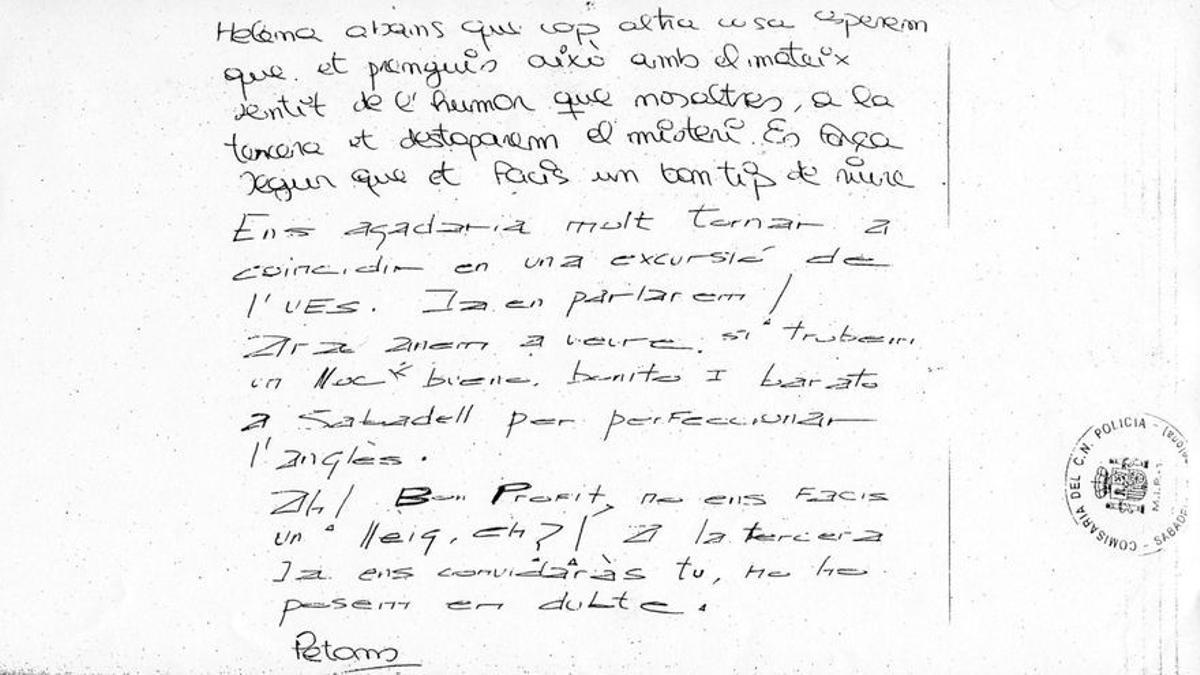 Helena abans que cap altra cosa esperem
que et prenguis això amb el mateix
sentit de l'humor que nosaltres, a la
tercera et destaparem el misteri. Es força
segur que et facis un bon tip de riure
Ens agadaria molt tornar a
coincidir en una excursió de
l'UES. Ja en parlarem!
Ara anem a veure si trobem
un lloc bueno, bonito I barato
a Sabadell per perfeccionar
l'anglès.
Ah! Bon Profit, no ens facis
un lleig, eh?! A la tercera
Ja ens convidaràs tu, no ho
posem en dubte.
Petons
COMISARIA DEL C.N. POLICIA - SABADELL
M.I.P.